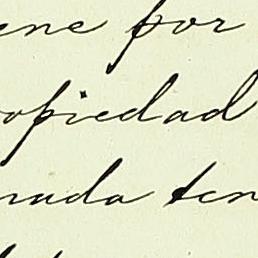 ene por
opiedad
nada ten